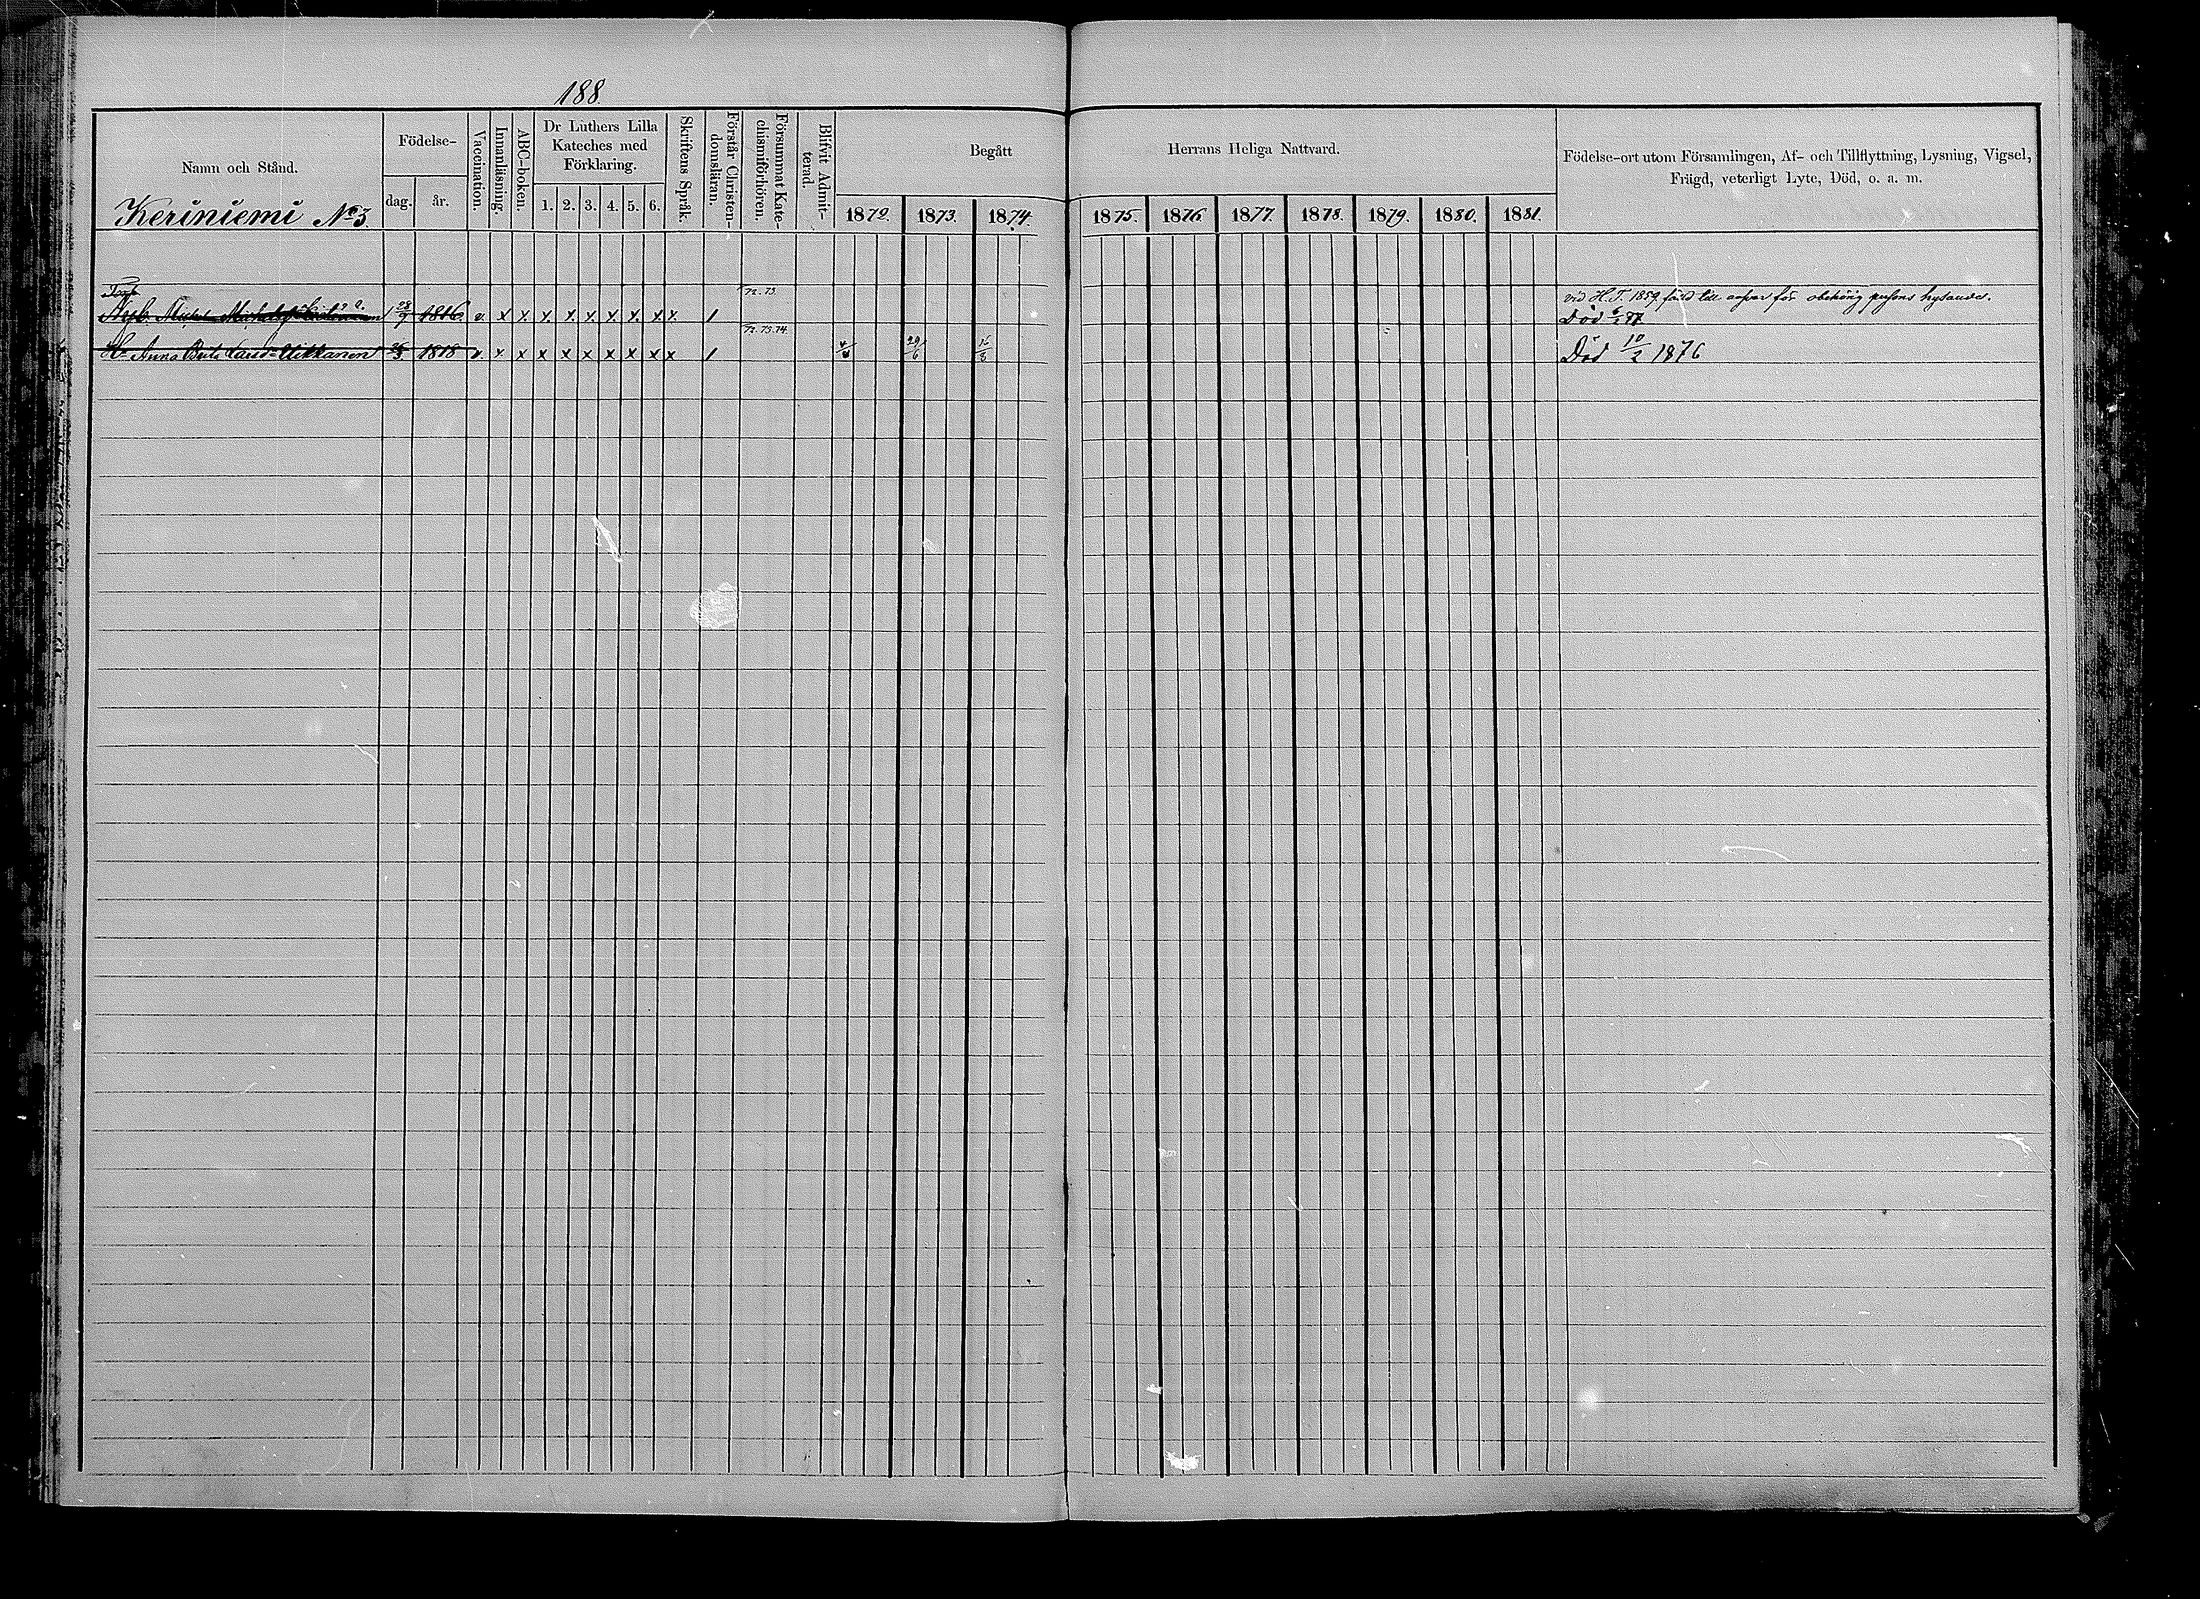 188.
Namn och Stånd.
Keriniemi No 3.
Födelse-
dag. år.
Vaccination.
Innanläsning.
ABC-boken.
Dr Luthers Lilla
Kateches med
Förklaring.
1. 2. 3. 4. 5. 6.
Skriftens Språk.
Förstår Christen-
domsläran.
Försummat Kate-
chismiförhören.
Blifvit Admit-
terad.
Begått Herrans Heliga Nattvard.
1872. 1873. 1874. 1875. 1876. 1877. 1878. 1879. 1880. 1881.
Födelse-ort utom Församlingen, Af- och Tillflyttning, Lysning, Vigsel,
Frägd, veterligt Lyte, Död, o. a. m.
Torp.
72. 73. vid H. T. 1859 för
Nyb. Michel 28/9 1816. v. x x. x. x. x. x. x. x. x. 1 Död
72. 73. 74.
Hu Anna Larsd Ukkanen 1818 v. x x x x x x x x x 1 29/6 Död 10/2 1876